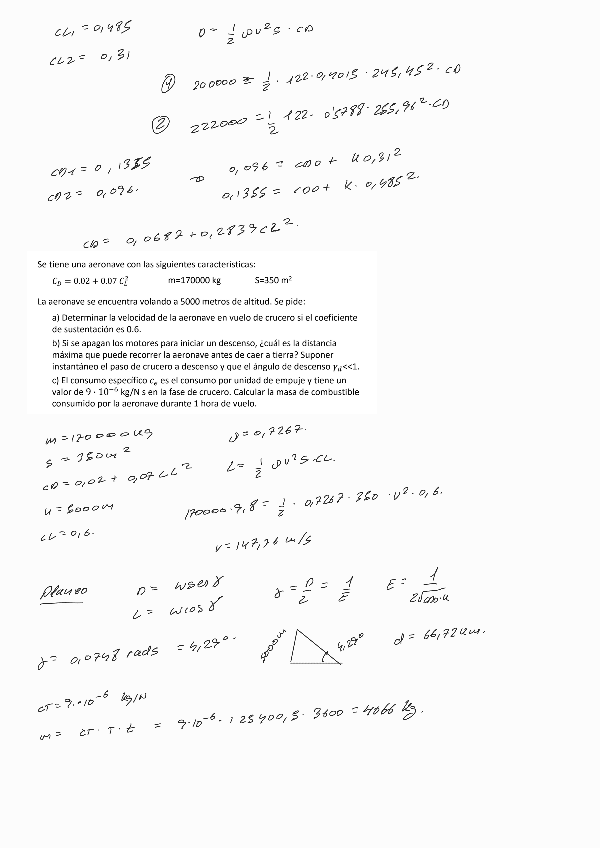 CL1 = 0,485 D = 1/2 ρv²S · CD
CL2 = 0,31
① 200000 = 1/2 · 122 · 0,4013 · 245,45² · CD
② 222000 = 1/2 122 · 0'5788 · 265,96² · CD
CD1 = 0,1355 ⇒ 0,096 = CD0 + K 0,31²
CD2 = 0,096. 0,1355 = CD0 + K · 0,485².
CD = 0,0682 + 0,2839 CL².
Se tiene una aeronave con las siguientes características:
C_D = 0.02 + 0.07 C_L² m=170000 kg S=350 m²
La aeronave se encuentra volando a 5000 metros de altitud. Se pide:
a) Determinar la velocidad de la aeronave en vuelo de crucero si el coeficiente
de sustentación es 0.6.
b) Si se apagan los motores para iniciar un descenso, ¿cuál es la distancia
máxima que puede recorrer la aeronave antes de caer a tierra? Suponer
instantáneo el paso de crucero a descenso y que el ángulo de descenso γ_d<<1.
c) El consumo específico c_e es el consumo por unidad de empuje y tiene un
valor de 9 · 10⁻⁶ kg/N s en la fase de crucero. Calcular la masa de combustible
consumido por la aeronave durante 1 hora de vuelo.
m = 170000 kg ρ = 0,7267.
S = 350 m² L = 1/2 ρv²S · CL.
CD = 0,02 + 0,07 CL²
h = 5000m 170000 · 9,8 = 1/2 · 0,7267 · 350 · v² · 0,6.
CL = 0,6. v = 147,76 m/s
Planeo D = W sen γ γ = D/L = 1/E E = 1/2√CD0·K
L = W cos γ
γ = 0,0748 rads = 4,29°. 5000 m 4,29° d = 66,72 km.
CT = 9·10⁻⁶ kg/N
m = CT · T · t = 9·10⁻⁶ · 125400,3 · 3600 = 4066 kg.